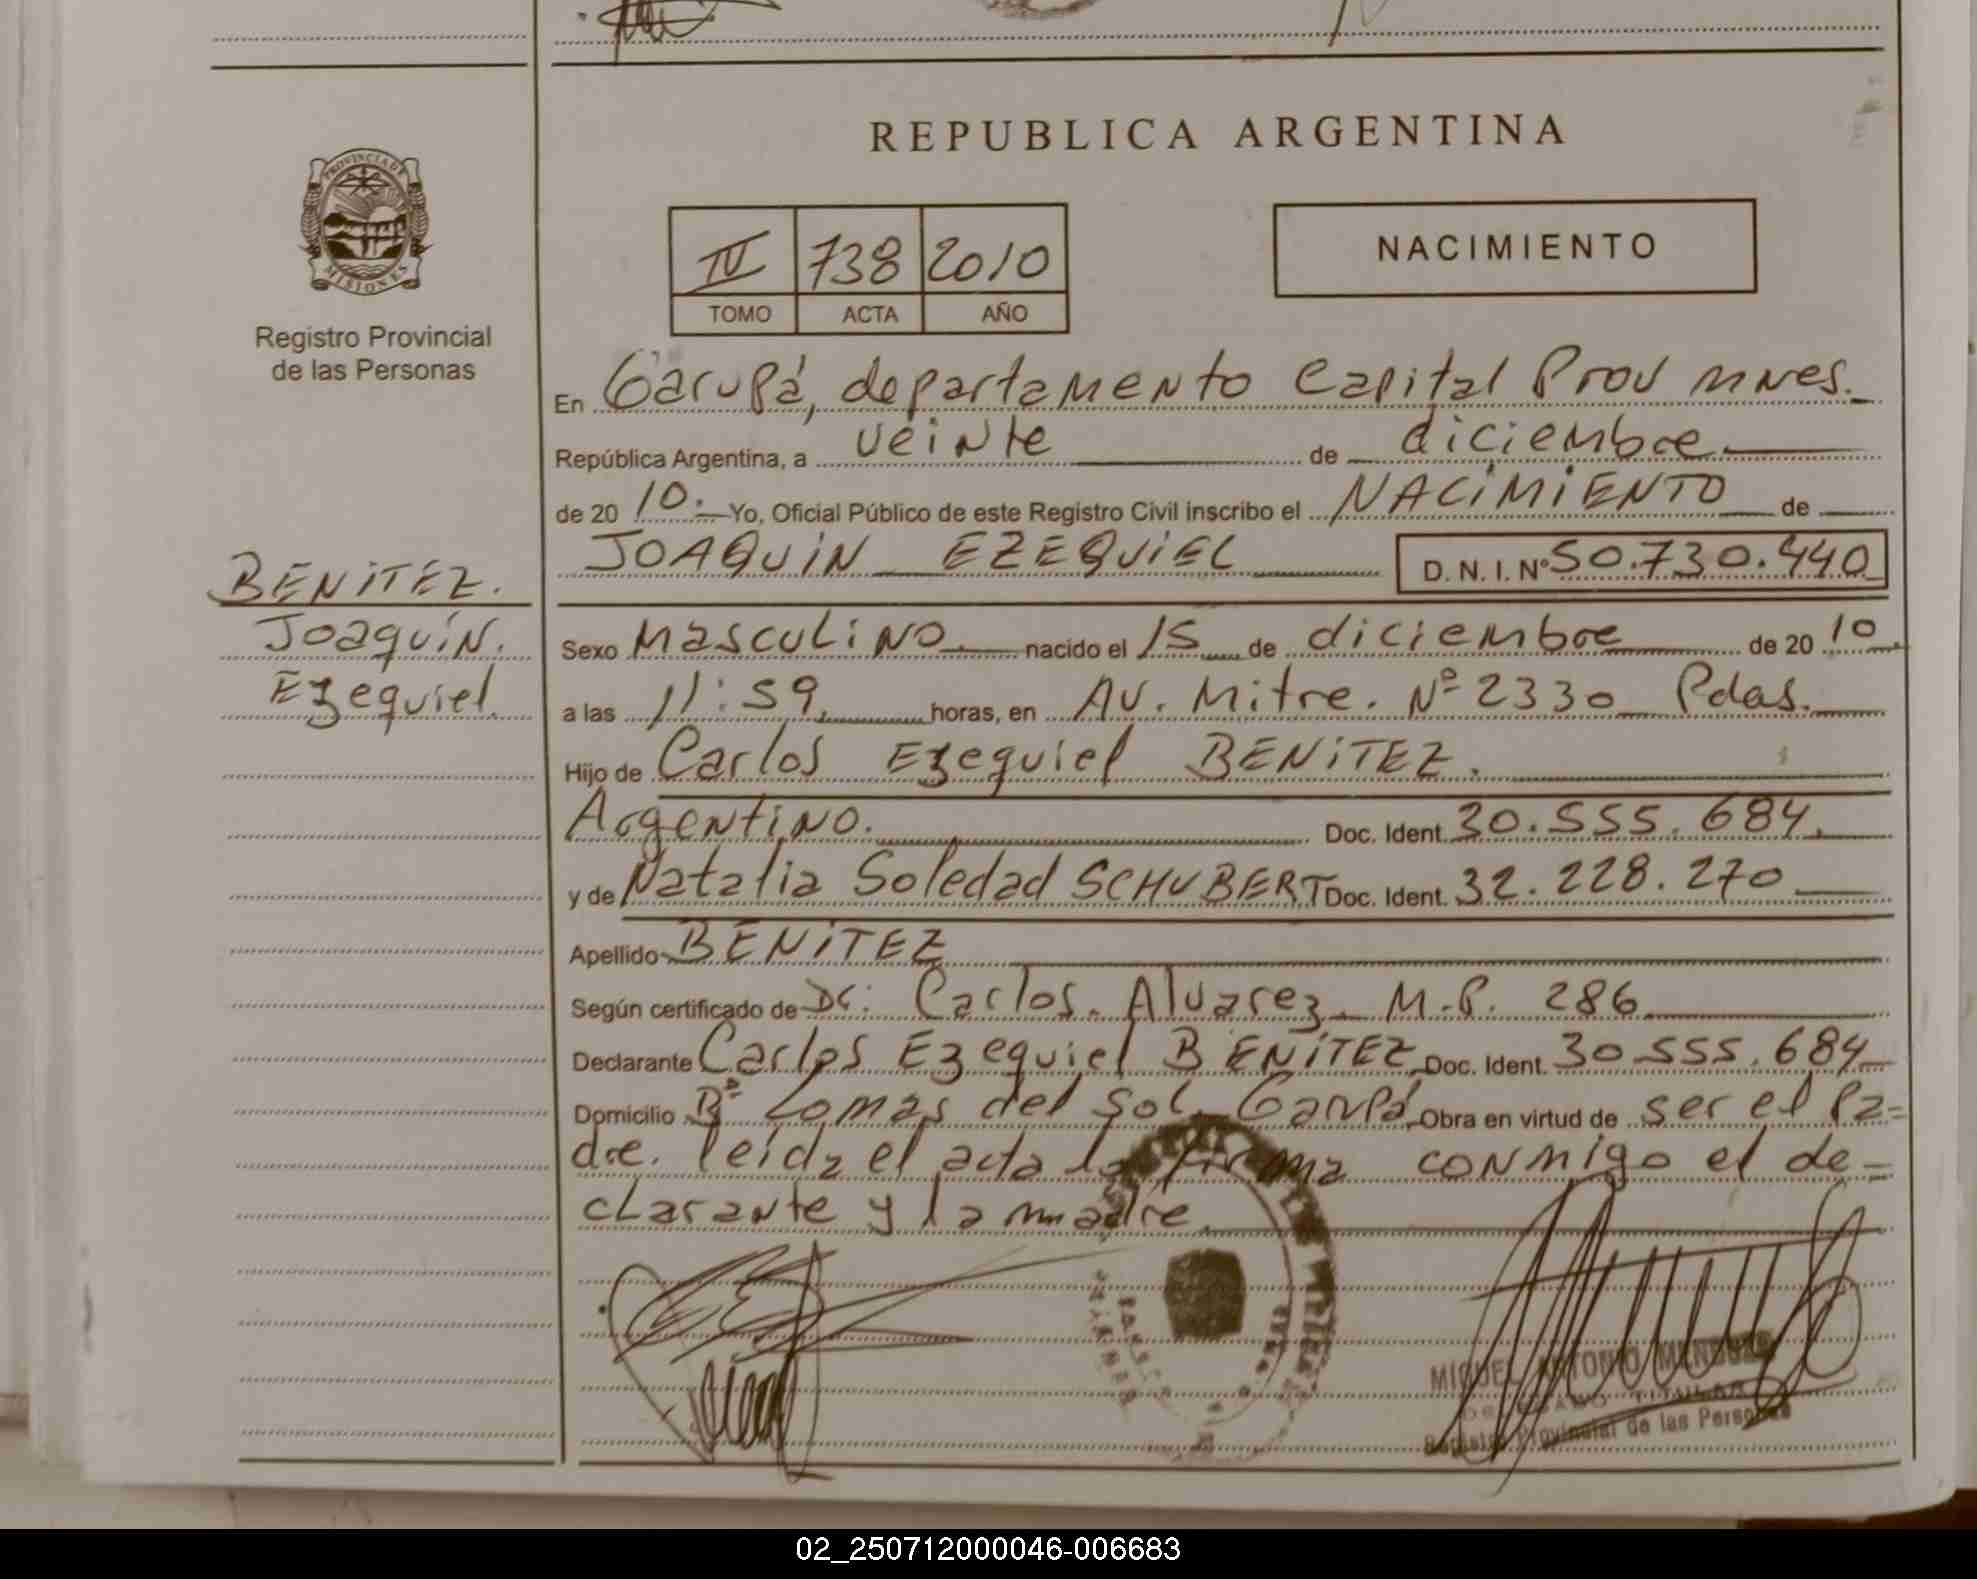 REPUBLICA ARGENTINA
PROVINCIA DE
MISIONES
Registro Provincial
de las Personas
IV 738 2010
TOMO ACTA AÑO
NACIMIENTO
En Garupá, departamento Capital Prov mnes.
República Argentina, a veinte de diciembre
de 20 10. Yo, Oficial Público de este Registro Civil inscribo el NACIMIENTO de
JOAQUIN EZEQUIEL D.N.I. Nº 50.730.440
BENITEZ.
Joaquín.
Ezequiel.
Sexo Masculino. nacido el 15 de diciembre de 20 10.
a las 11:59. horas, en Av. Mitre. Nº 2330 Pdas.
Hijo de Carlos Ezequiel BENITEZ.
Argentino. Doc. Ident. 30.555.684.
y de Natalia Soledad SCHUBERT Doc. Ident. 32.228.270
Apellido BENITEZ
Según certificado de Dr: Carlos. Alvarez. M.P. 286
Declarante Carlos Ezequiel BENITEZ Doc. Ident. 30.555.684
Domicilio Bº Lomas del Sol. Garupá. Obra en virtud de ser el Pa=
dre. leída el acta la firma conmigo el de-
clarante y la madre.
MIGUEL ANTONIO MENDOZA
TITULAR
Registro Provincial de las Personas
02_250712000046-006683